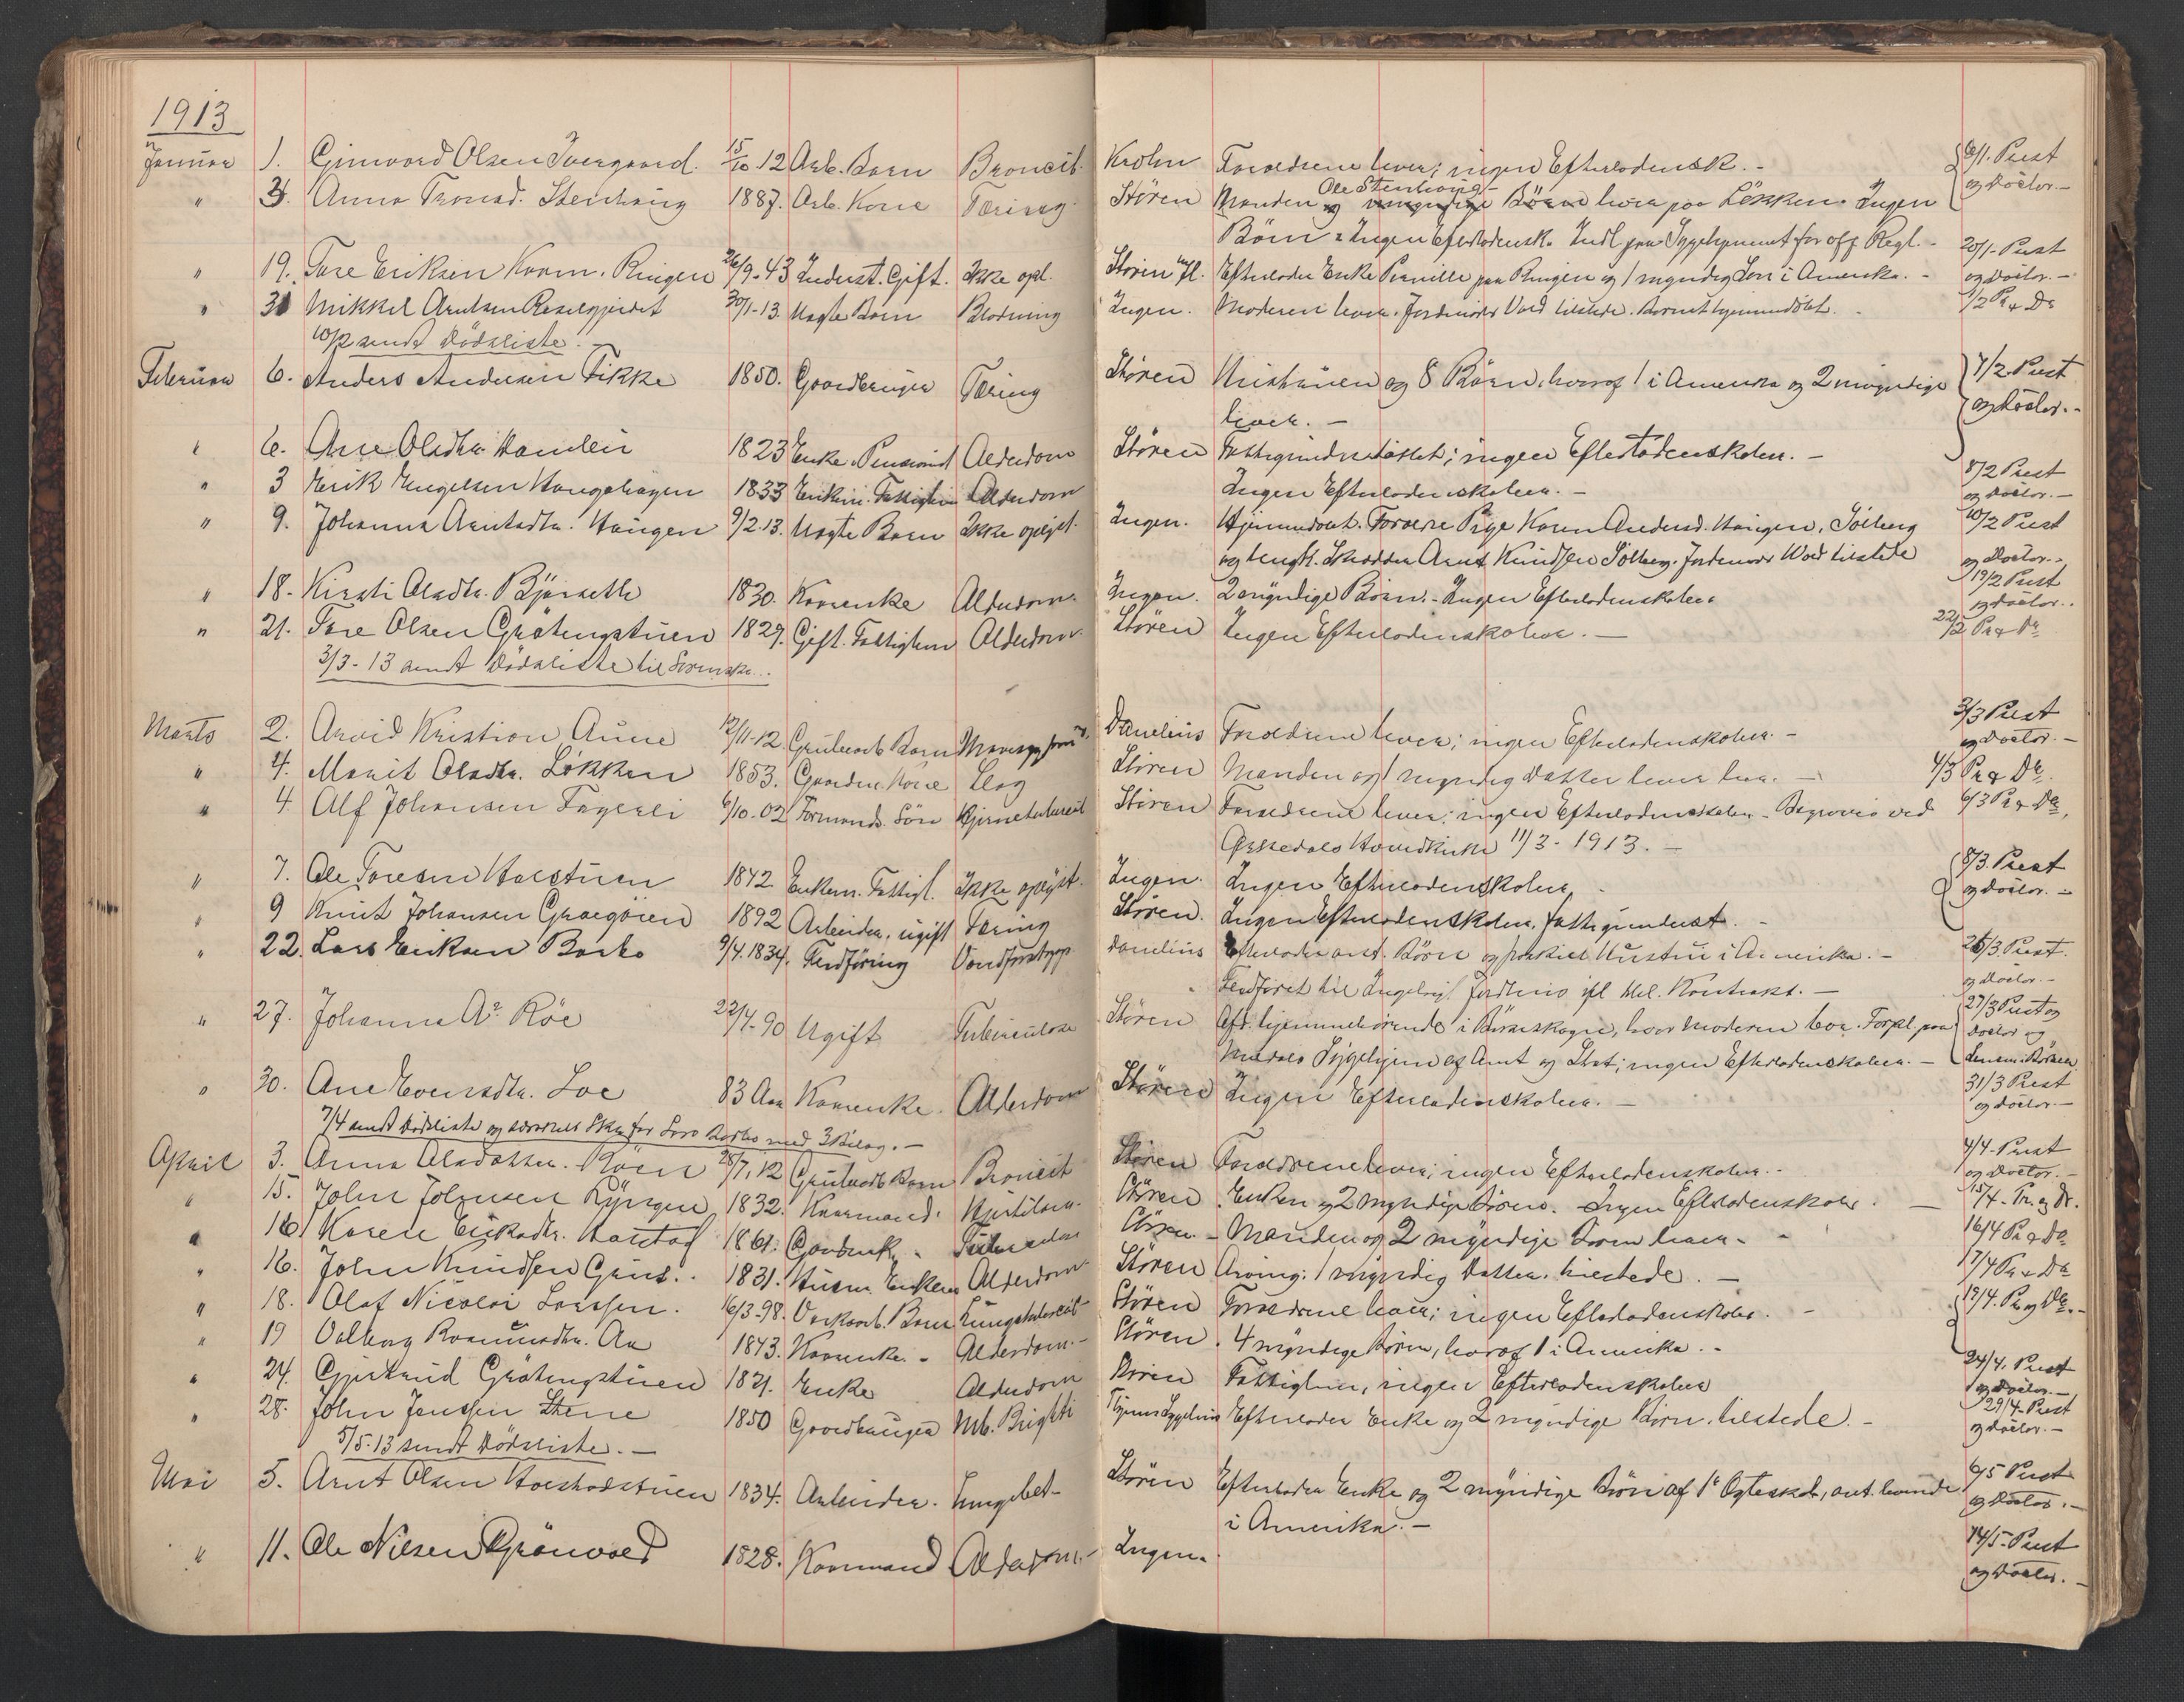 1913
Januar 1. Gunvord Olsen Ivergaard. 15/10 12 Arb. Barn Broncit. Krohn Forældrene lever; ingen Efterladensk. - 6/1. Prest
" 3. Anna Tronsd. Stenhaug 1887. Arb. Kone Tæring Stören Manden Ole Stenhaug og umyndige Börn lever paa Lökken. Ingen og Doctor. -
Börn. Ingen Efterladensk. Indl paa Sygehjemmet for off Regl. -
" 19. Tore Eriksen Ringen 26/9-43 Inderst. Gift. Ikke opl. Stören Efterlader Enke Pernille paa Ringen og 1 myndig Sön i Amerika. - 20/1- Prest og Doctor. -
" 31 Mikkel Arntsen 30/1-13. Uægte Barn Blödning Ingen. Moderen lever. Jordmoder Vold tilstede. Barnet hjemmedöbt. 1/2 Pr & Dr
10/2 sendt Dödsliste. -
Februar 6. Anders Andersen Fikke 1850. Gaardbruger Tæring Stören Hustruen og 8 Börn, hvoraf 1 i Amerika og 2 umyndige 7/2 Prest
lever. - og Doctor. -
" 6. Ane Olsdtr. Hamlen 1823 Enke. Pensionist Alderdom Stören Fattigunderstöttet; ingen Efterladenskaber. -
" 3 Erik Engelsen Haugahagen 1833 Enkem. Fattiglem Alderdom Ingen Efterladenskaber. - 8/2 Prest og Doctor. -
" 9. Johanna Arntsdtr. Haugen 9/2.13. Uægte Barn Ikke oplyst. Ingen. Hjemmedöbt. Forældre Pige Karen Andersd. Haugen, Sölberg 10/2 Prest
og ungk. Skrædder Arnt Knudsen Solberg. Jordmoder Wold tilstede og Doctor. -
" 18. Kirsti Olsdtr. Björseth 1830. Kaarenke Alderdom. Ingen. 2 myndige Börn. - Ingen Efterladenskaber 19/2 Prest og Doctor. -
" 21. Tore Olsen Grötengstuen 1829. Gift. Fattiglem Alderdom. Stören Ingen Efterladenskaber. - 22/2 Pr & Dr
3/3 - 13 sendt Dödsliste til
Marts 2. Arvid Kristian Aune 12/11-12. Grubearb Barn Danelius Forældrene lever; ingen Efterladenskaber. - 3/3 Prest og Doctor. -
" 4. Marit Olsdtr. Lökken 1853. Gaardm. Kone Slag Stören Manden og 1 myndig Datter lever her. - 4/3 Pr & Dr.
" 4. Alf Johansen Fagerli 6/10-02 Formands Sön Hjernetuberkul Stören Forældrene lever; ingen Efterladenskaber - Begraves ved 6/3 Pr & Dr.
Ørkedals Hovedkirke 11/3 - 1913. -
" 7. Ole Toresen Halstuen 1842 Enkem. Fattigl. Ikke oplyst. Ingen. Ingen Efterladenskaber. 8/3. Prest og Doctor. -
" 9 Knut Johansen Gravöien 1892 Arbeider, ugift Tæring Stören. Ingen Efterladenskaber, fattigunderst. -
" 22. Lars Eriksen Barbo 9/4.1834. Fledföring Danelius Efterlader ant. Börn og fraskilt Hustru i Amerika. - 25/3 Prest.
Fledföret til Ingebrigt ifl hel. Kontrakt. - og Doctor. -
" 27. Johanna A. Röe 22/4-90 Ugift Tuberculose Stören Afd. hjemmehörende i Börseskogn, hvor Moderen bor. Forpl. paa 27/3 Prest og
Meldals Sygehjem af Amt og Stat; ingen Efterladenskaber. - Doctor og Lensm. i Börsen
" 30. Ane Evensdtr. Loe 83 Aar Kaarenke. Alderdom Stören Ingen Efterladenskaber. - 31/3 Prest og Doctor. -
7/4 sendt Dödsliste og for Lars Barbo med 3 Bilag. -
April 3. Anna Olsdatter. Röen 28/7.12 Grubearb Barn Broncit Stören Forældrene lever; ingen Efterladenskaber. - 4/4. Prest og Doctor. -
" 15. John Johnsen Ryngen 1832. Kaarmand. Stören. Enken og 2 myndige Börn. Ingen Efterladenskaber. - 15/4 - Pr. og Dr.
" 16 Karen Eriksdtr. 1861. Stören. - Manden og 2 myndige Börn lever. - 16/4 Pr & Dr
" 16. John Knudsen 1831. Husm. Enkem Alderdom Stören Arving: 1 myndig Datter. tilstede. - 17/4 Pr & Dr
" 18. Olaf Nicolai Larssen. 16/3-98. Barn Stören Forældrene lever; ingen Efterladenskaber. - 19/4. Pr og Dr. -
" 19 Valborg Rasmusdtr. Aa 1843. Kaarenke. - Alderdom. - Stören. 4 myndige Börn, hvoraf 1 i Amerika. -
" 24. Gjertrud Grötengstuen 1821. Enke Alderdom Stören Fattiglem, ingen Efterladenskaber 24/4. Prest og Doctor. -
" 28. John Jenssen Stene 1850 Gaardbruger Mb. Brighti Efterlader Enke og 2 myndige Börn, tilstede. - 29/4 - Prest og Doctor. -
5/5-13 sendt Dödsliste. -
Mai 5. Arnt Olsen 1834. Arbeider. Lungebet- Stören Efterlader Enke og 2 myndige Börn af 1ste Egteskab, ant. levende 6/5 Prest
i Amerika. - og Doctor. -
" 11. Ole Nilsen Grönvold 1828. Kaarmand Alderdom. - Ingen. 14/5 - Prest
og Doctor. -